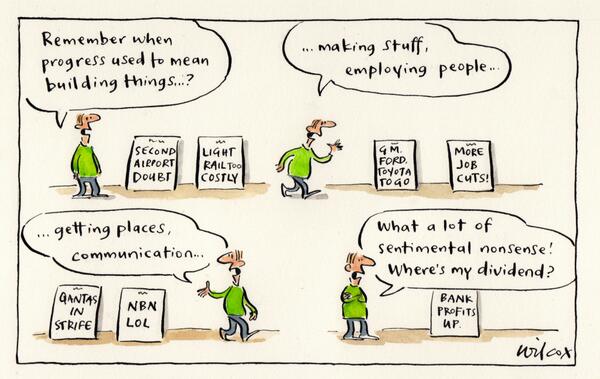 Remember when
progress used to mean
building things...?
SECOND
AIRPORT
DOUBT
LIGHT
RAIL TOO
COSTLY
...making stuff,
employing people...
G.M.
FORD,
TOYOTA
TO GO
MORE
JOB
CUTS!
...getting places,
communication...
QANTAS
IN
STRIFE
NBN
LOL
What a lot of
sentimental nonsense!
Where's my dividend?
BANK
PROFITS
UP.
wilcox